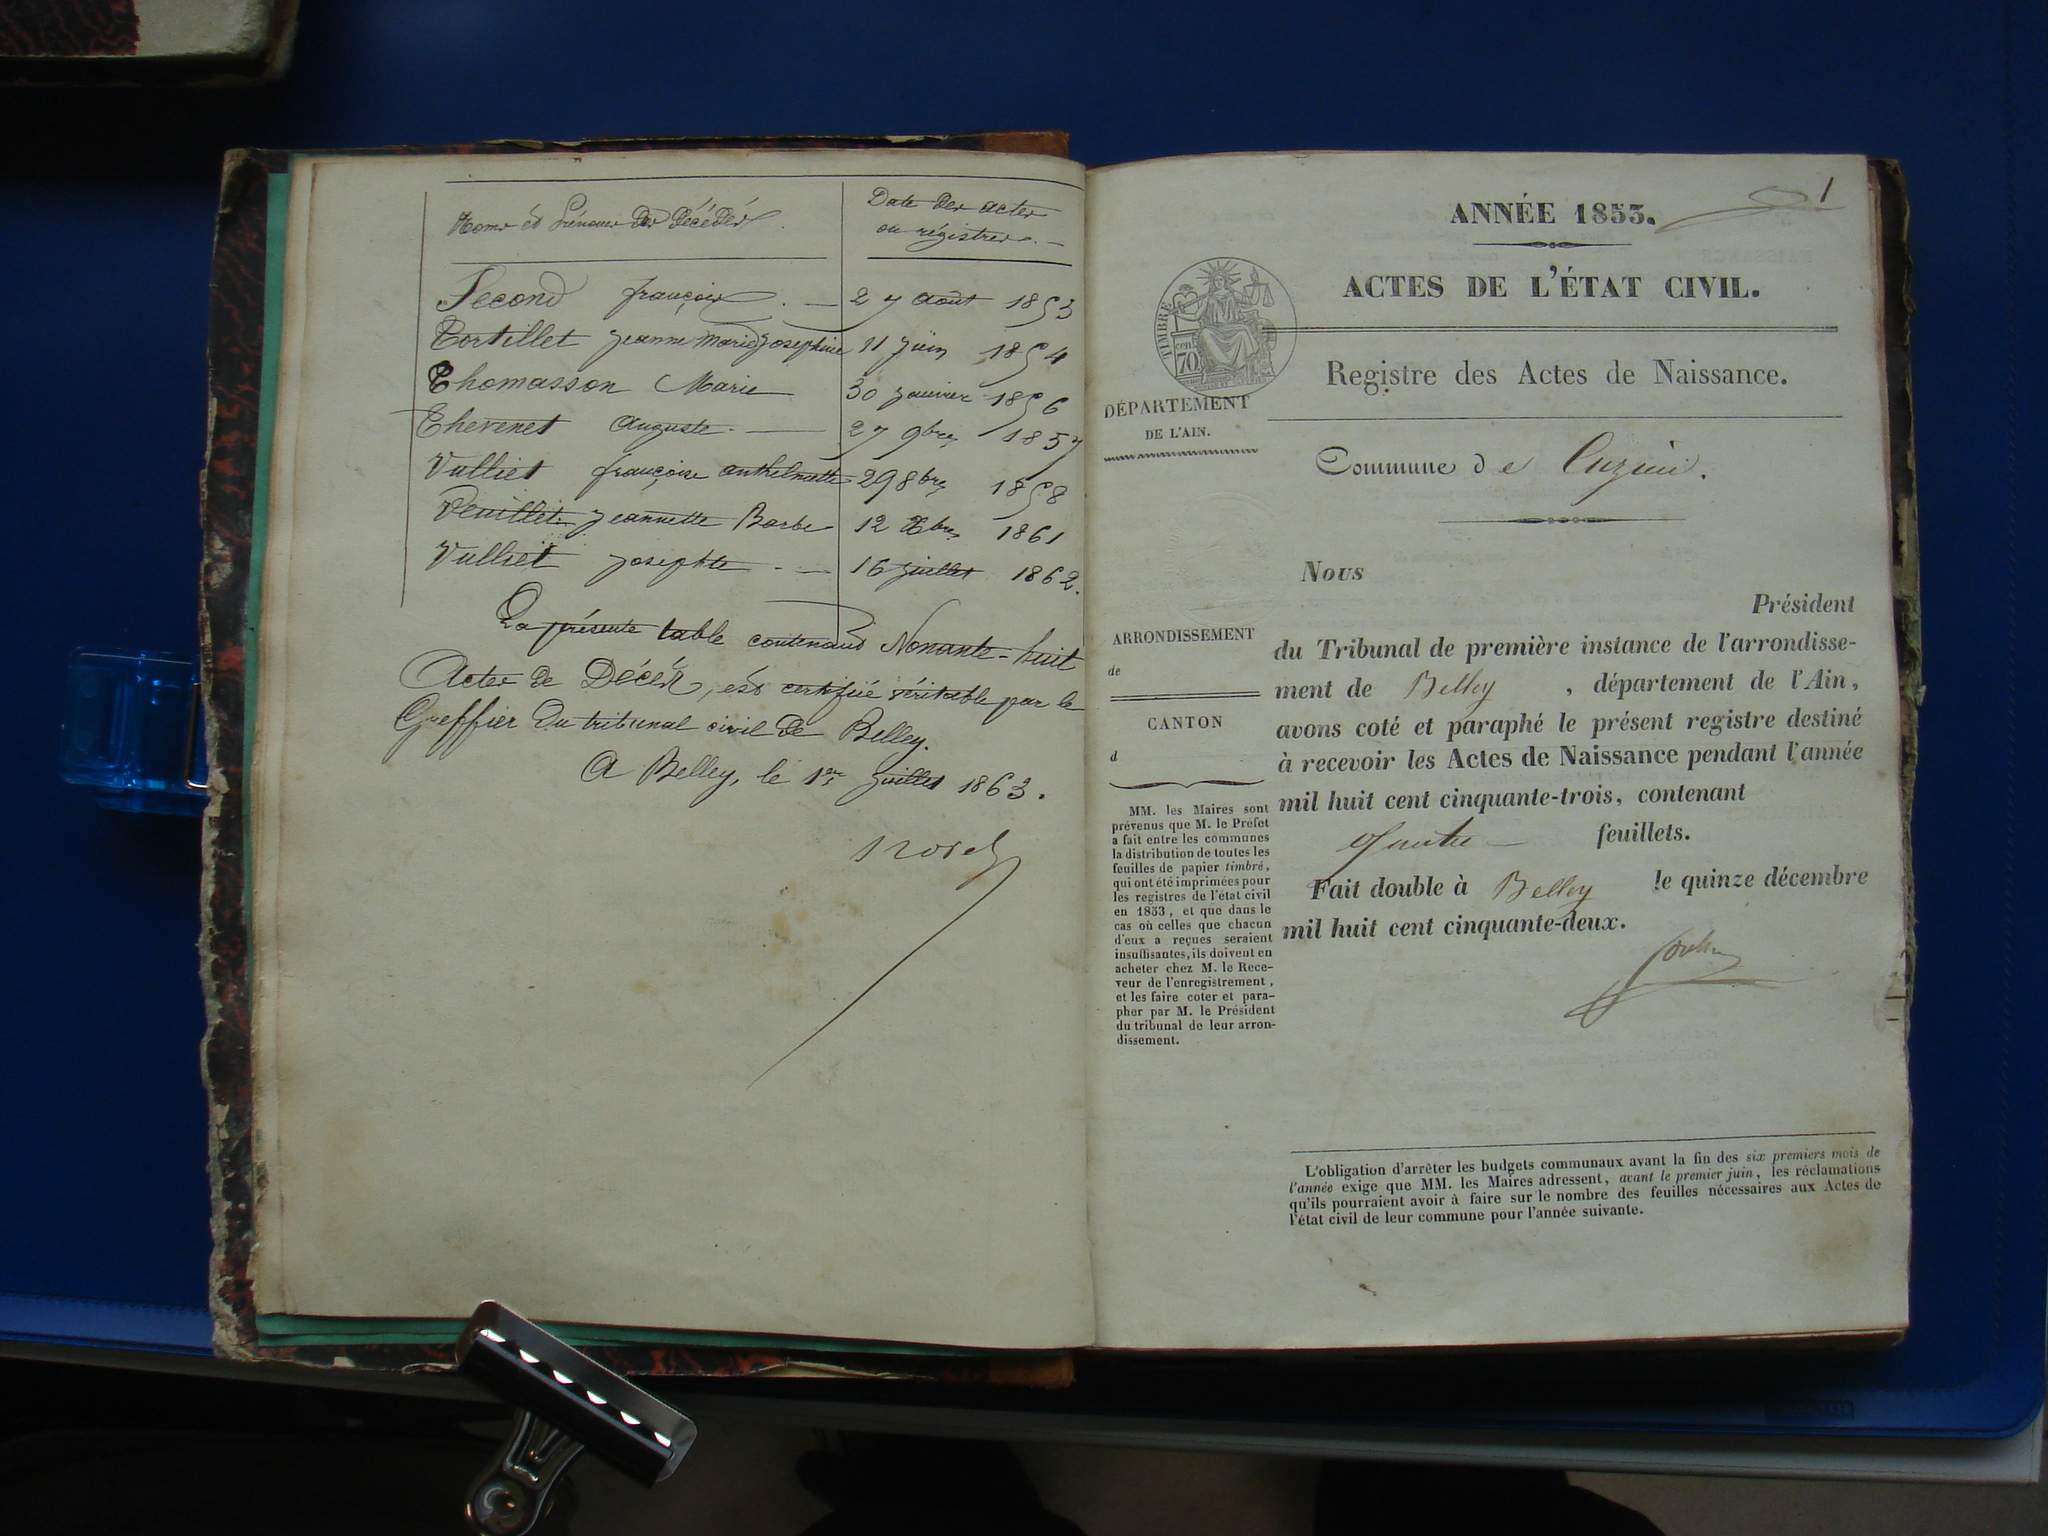 Noms et Prénoms des décédés.
Date des actes
ou régistres.
Second françois. — 27 août 1853
Tortillet Jeanne Marie Josephine 11 juin 1854
Thomasson Marie 30 janvier 1856
Thevenet Auguste. — 27 9bre 1857
Vulliet françoise anthelmette 29 8bre 1858
Veuillet Jeannette Barbe 12 Xbre 1861
Vulliet Josephte. — 16 juillet 1862.
La présente table contenant Nonante-huit
Actes de Décès, est certifiée véritable par le
Greffier du tribunal civil de Belley.
A Belley, le 1er juillet 1863.
1
ANNÉE 1853.
ACTES DE L'ÉTAT CIVIL.
TIMBRE
cen.
70
Registre des Actes de Naissance.
DÉPARTEMENT
DE L'AIN.
Commune de Cuzieu.
Nous
Président
du Tribunal de première instance de l'arrondisse-
ment de Belley, département de l'Ain,
avons coté et paraphé le présent registre destiné
à recevoir les Actes de Naissance pendant l'année
mil huit cent cinquante-trois, contenant
quatre — feuillets.
Fait double à Belley le quinze décembre
mil huit cent cinquante-deux.
ARRONDISSEMENT
de
CANTON
d
MM. les Maires sont
prévenus que M. le Préfet
a fait entre les communes
la distribution de toutes les
feuilles de papier timbré,
qui ont été imprimées pour
les registres de l'état civil
en 1853, et que dans le
cas où celles que chacun
d'eux a reçues seraient
insuffisantes, ils doivent en
acheter chez M. le Rece-
veur de l'enregistrement,
et les faire coter et para-
pher par M. le Président
du tribunal de leur arron-
dissement.
L'obligation d'arrêter les budgets communaux avant la fin des six premiers mois de
l'année exige que MM. les Maires adressent, avant le premier juin, les réclamations
qu'ils pourraient avoir à faire sur le nombre des feuilles nécessaires aux Actes de
l'état civil de leur commune pour l'année suivante.